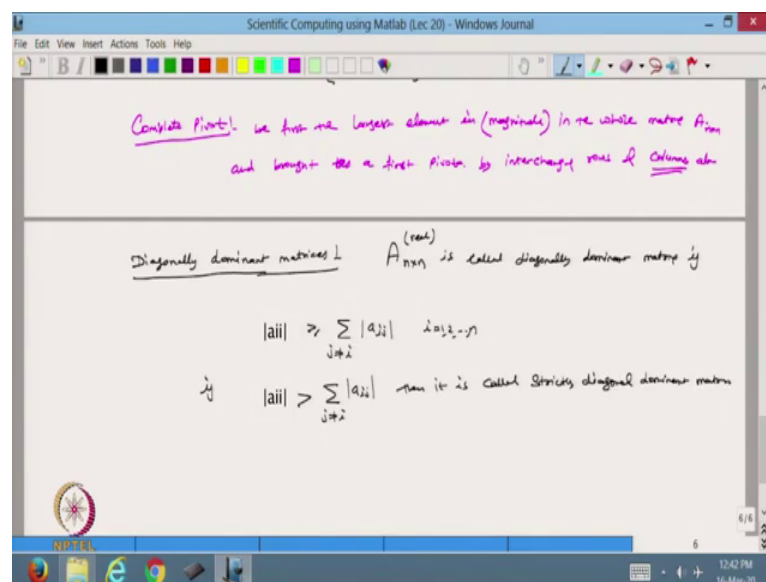 Scientific Computing using Matlab (Lec 20) - Windows Journal
File Edit View Insert Actions Tools Help
Complete Pivot:- we first the largest element in (magnitude) in te whole matrix Anxn
and brought the a first Pivot. by interchang rows & columns also
Diagonally dominant matrices:- Anxn (real) is called diagonally dominant matrix if
|aii| ≥ ∑j≠i |aij| i=1,2,...,n
if |aii| > ∑j≠i |aij| then it is called Strictly diagonal dominant matrix
NPTEL
6/6
6
12:42 PM
16-Mar-20